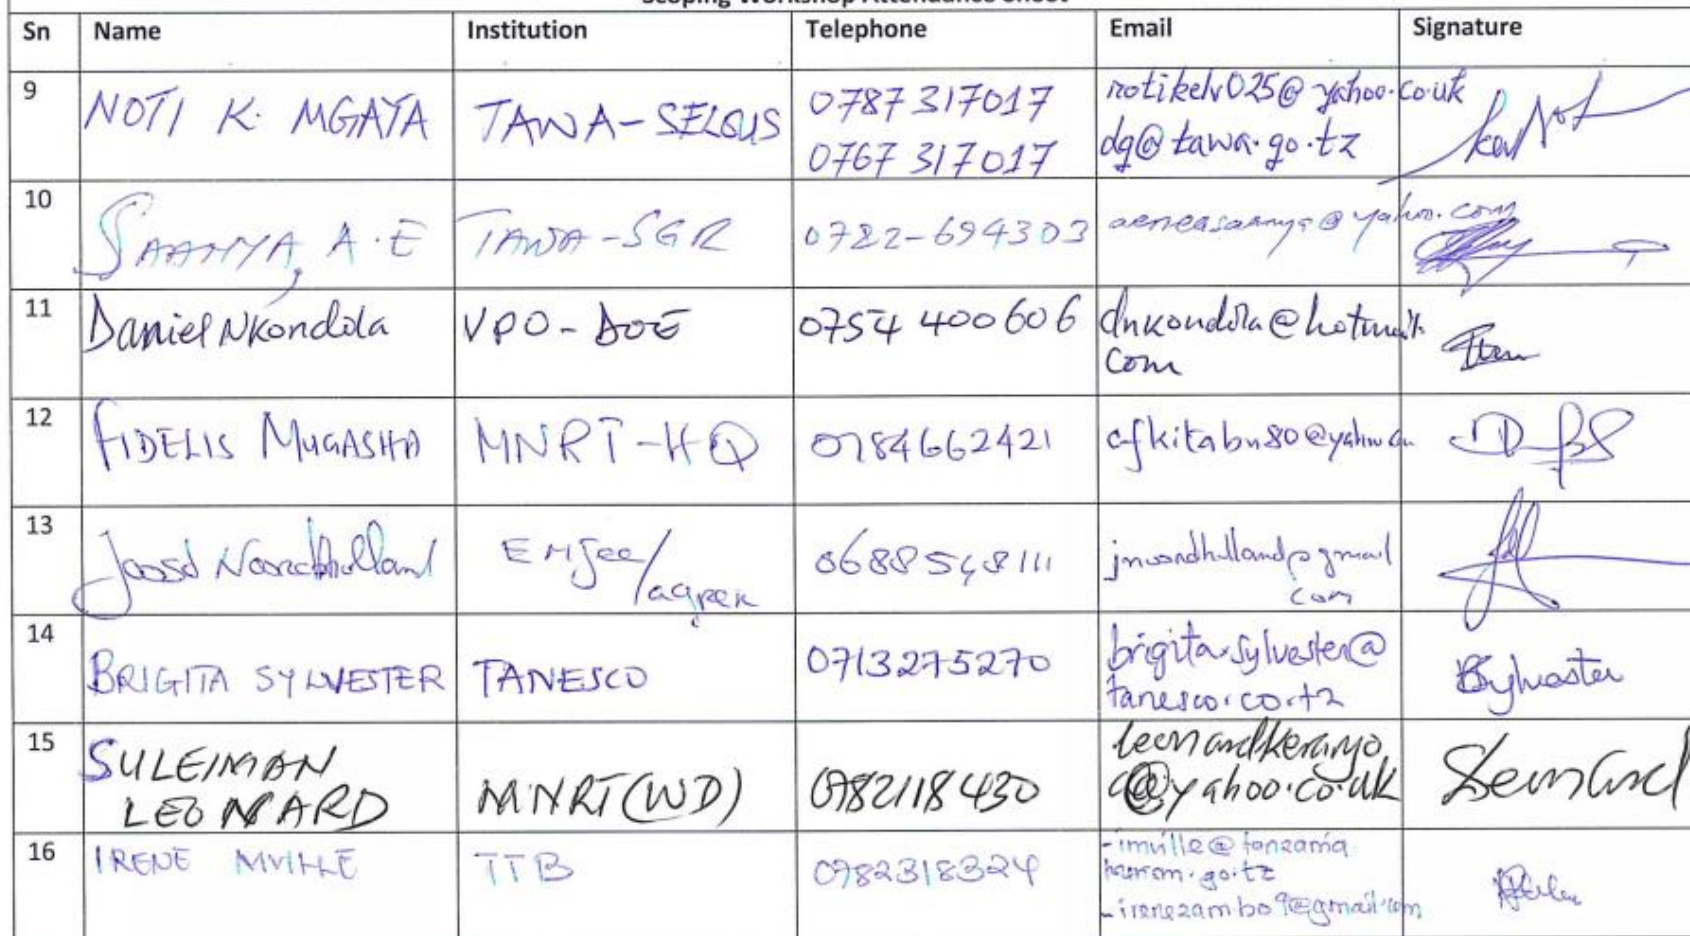 Scoping Workshop Attendance Sheet
Sn Name Institution Telephone Email Signature
9 NOTI K. MGATA TAWA-SELOUS 0787 317017 notikelv025@yahoo.co.uk
0767 317017 dg@tawa.go.tz
10 SAANYA, A.E TAWA-SGR 0782-694303 aeneasaanya@yahoo.com
11 Daniel Nkondola VPO-DOE 0754 400606 dnkondola@hotmail.
com
12 FIDELIS MUGASHA MNRT-HQ 0784662421 cfkitabu80@yahoo.com
13 Emjee/ 0688548111 jnoordhulland@gmail
com
14 BRIGITA SYLVESTER TANESCO 0713275270 brigita.sylvester@
tanesco.co.tz
15 SULEIMAN
LEONARD MNRT(WD) 0782118430 leonardkeranyo
@yahoo.co.uk
16 IRENE MVILLE TTB 0782318324 -imville@tanzania
.go.tz
-irenezambo9@gmail.com